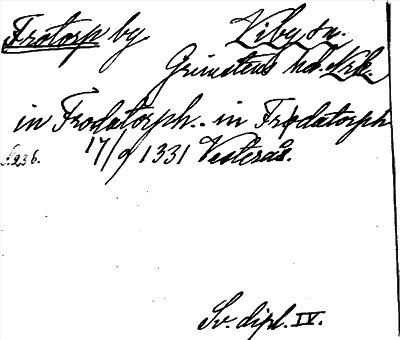 Frotorp by Viby sn.
Grimstens hd. Nrk.
in Frodatorph.. in Frodatorph
s. 236. 17/9 1331 Vesterås.
Sv. dipl. IV.